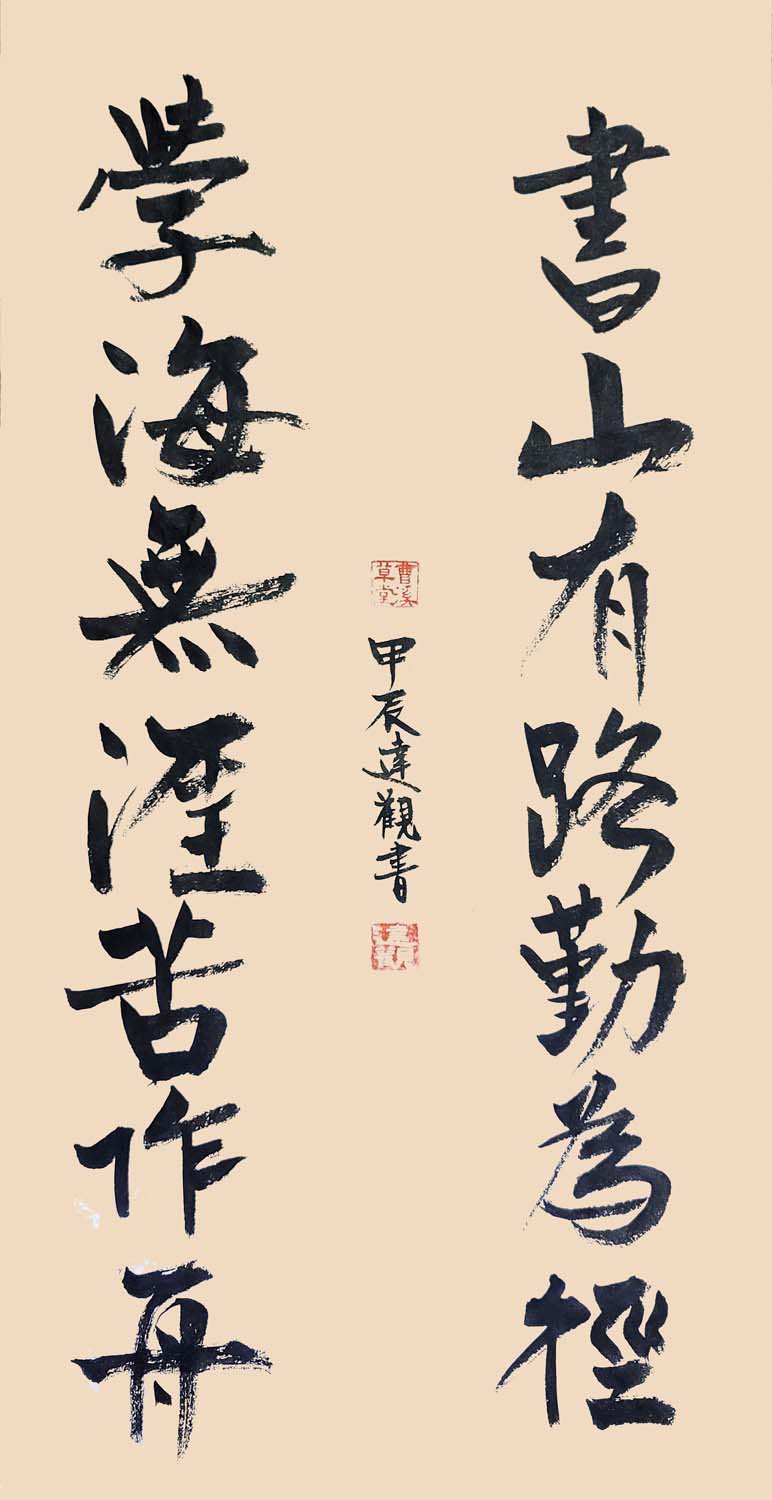 書山有路勤為徑
學海無涯苦作舟
曹溪草堂
甲辰達觀書
達觀